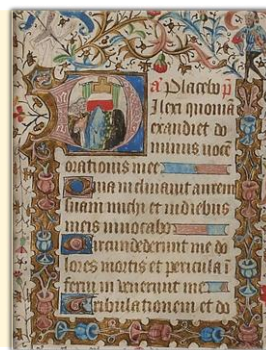 a Placebo p
Dilexi quoniā
exaudiet do
minus uocē
orationis mee
Quia inclinauit aurem
suam michi et in diebus
meis inuocabo
Circundederunt me do
lores mortis et pericula ī
ferni inuenerunt me
Tribulationem et do